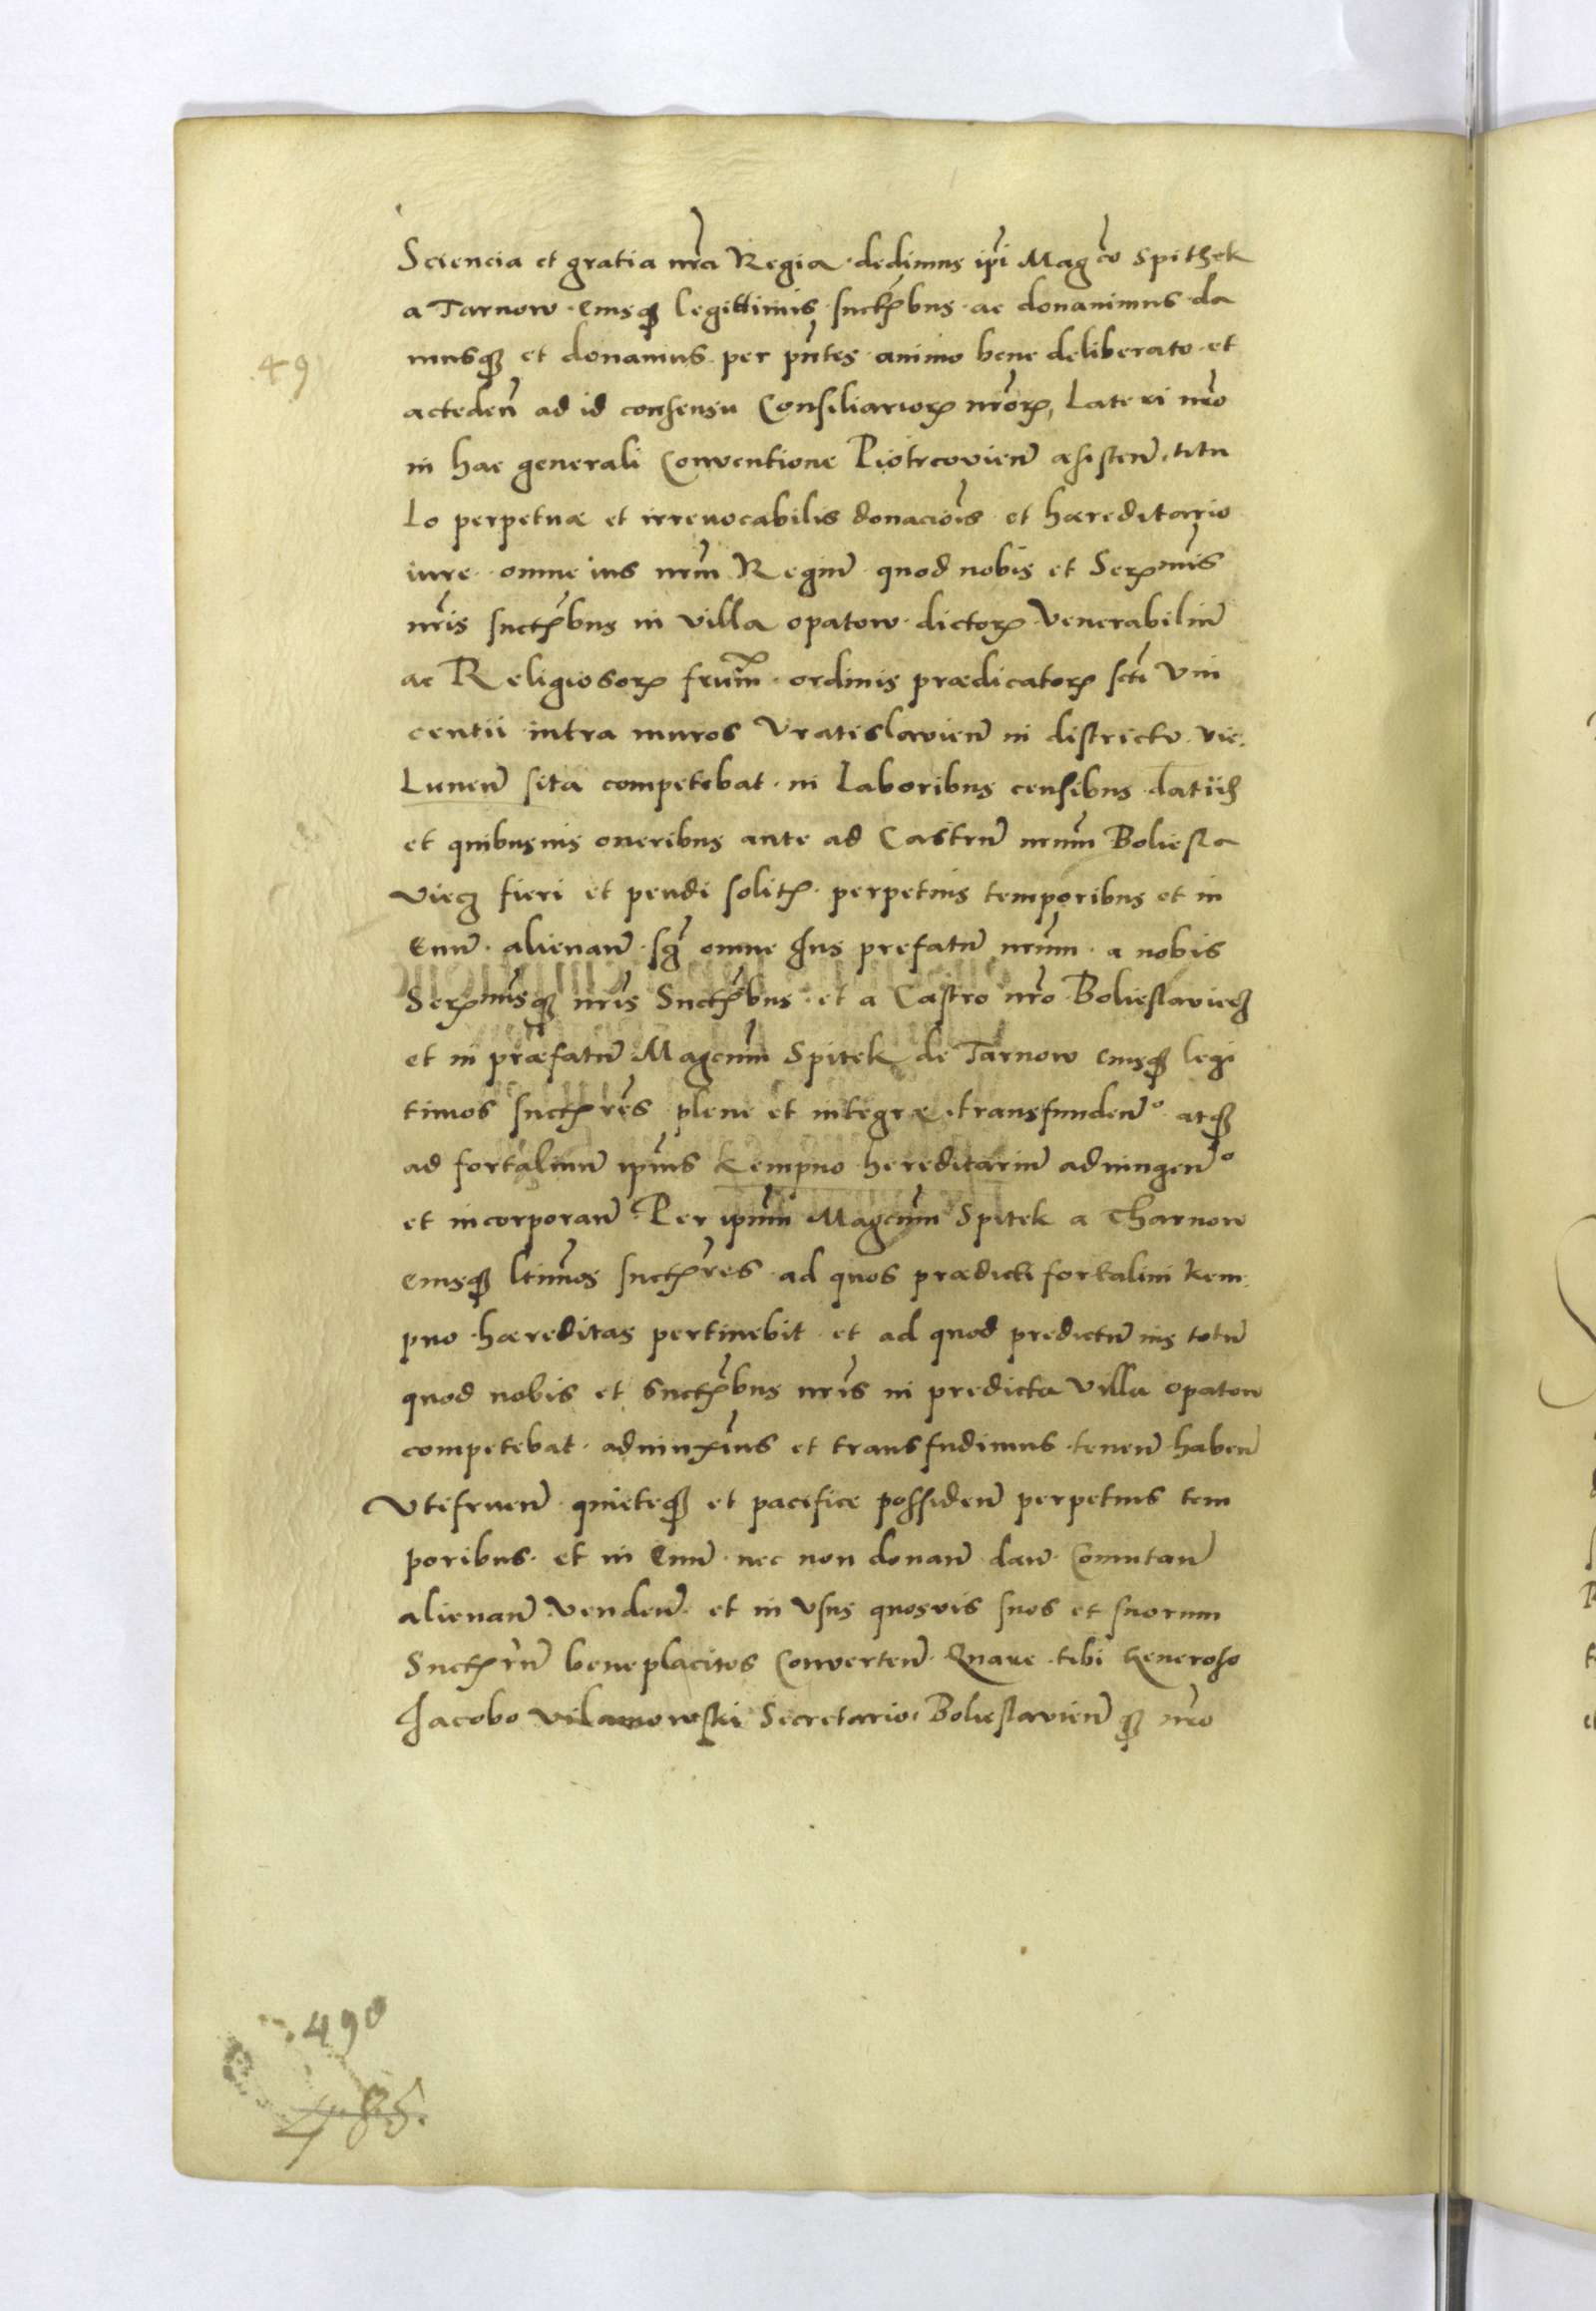 Sciencia et gratia nr̃a Regia dedimus ip̃i Magco Spithek
a Tarnow eiusqȝ legittimis succ̃bus ac donauimus da
musqȝ et donamus per pñtes animo bene deliberato et
acceden̄ ad id consensu Consiliarioꝝ nr̃oꝝ, Lateri nr̃o
in hac generali Conuentione Piotrcouien̄ assisten̄. titu
lo perpetuæ et irreuocabilis donaciõis et hæreditario
iure omne ius nr̃m Regiū quod nobis et Serꝫmis
nr̃is succ̃bus in villa opatow dictoꝝ Venerabiliū
ac Religiosoꝝ frũm ordinis prædicatoꝝ scti Vin
centii intra muros Vratislauien̄ in districtu vie.
Lunen̄ sita competebat in Laboribus censibus datiis
et quibusuis oneribus ante ad Castrū nrum̃ Boliesla
viecz fieri et pendi solitꝭ perpetuis temporibus et in
Euū alienan̄ sꝫ omne Jus prefatū nrum̃ a nobis
Serꝫmisqȝ nr̃is Succ̃bus et a Castro nr̃o Bolieslaviecz
et in præfatū Magcum̃ Spitek de Tarnow eiusqȝ legi
timos succr̃es plene et integræ transfunden̄° atqȝ
ad fortalitiū ip̃ius Kempno hereditariū adiungen̄°
et incorporan̄ Per ip̃um Magcum̃ Spitek a Tharnow
eiusqȝ ltimõs succr̃es ad quos prædicti fortalitii Kem
pno hæreditas pertinebit et ad quod predictū ius totū
quod nobis et Succ̃bus nr̃is in predicta villa opatow
competebat adiunximus et transfudimus tenen̄ haben̄
Utifruen̄ quieteqȝ et pacifice possiden̄ perpetuis tem
poribus et in Euū nec non donan̄ dan̄ Comutan̄
alienan̄ venden̄ et in Usus quosvis suos et suorum
Succr̃ū beneplacitos Conuerten̄ Quare tibi Generoso
Jacobo vilamowski Secretario Bolieslauien̄ qȝ nr̃o
49
490
485.